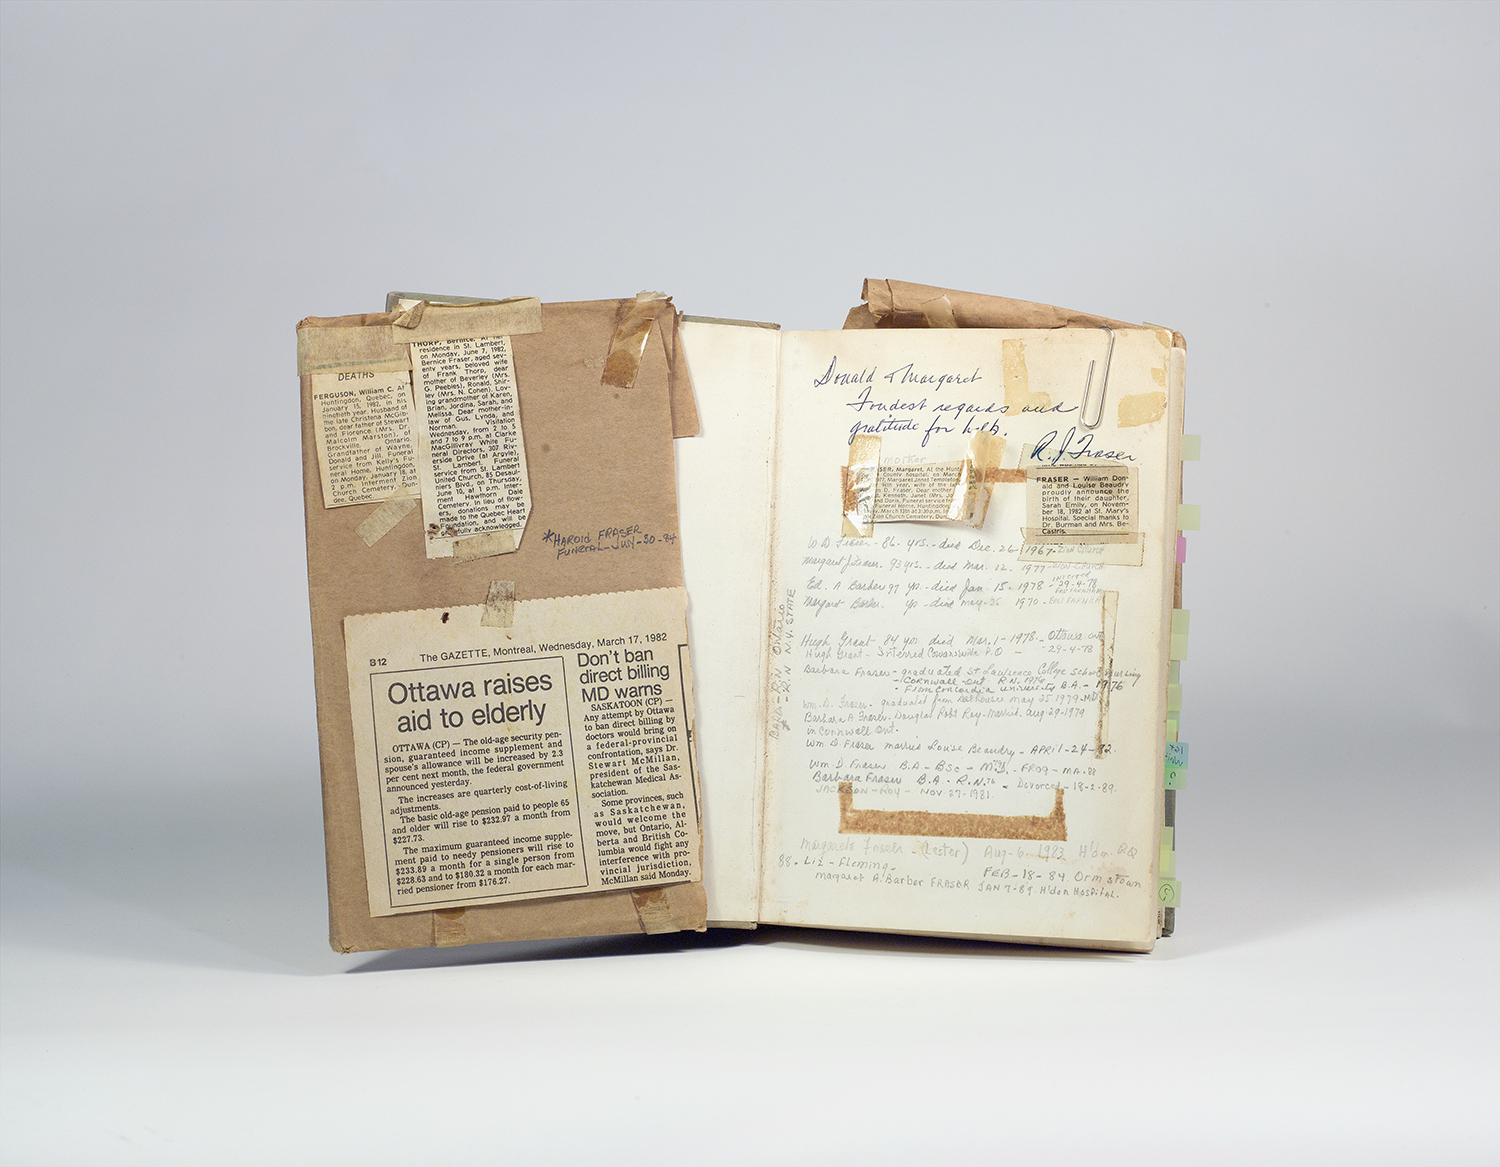 DEATHS
FERGUSON, William C. At
Huntingdon, Quebec, on
January 15, 1982, in his
ninetieth year. Husband of
the late Christena McGib-
bon, dear father of Stewart
and Florence (Mrs. Dr.
Malcolm Marston), of
Brockville, Ontario.
Grandfather of Wayne,
Donald and Jill. Funeral
service from Kelly's Fu-
neral Home, Huntingdon,
on Monday, January 18, at
2 p.m. Interment Zion
Church Cemetery, Dun-
dee, Quebec.
THORP, Bernice. At her
residence in St. Lambert,
on Monday, June 7, 1982,
Bernice Fraser, aged sev-
enty years, beloved wife
of Frank Thorp, dear
mother of Beverley (Mrs.
G. Peebles), Ronald, Shir-
ley (Mrs. N. Cohen). Lov-
ing grandmother of Karen,
Brian, Jordina, Sarah, and
Melissa. Dear mother-in-
law of Gus, Lynda, and
Norman. Visitation
Wednesday, from 2 to 5
and 7 to 9 p.m. at Clarke
MacGillivray White Fu-
neral Directors, 307 Riv-
erside Drive (at Argyle),
St. Lambert. Funeral
service from St. Lambert
United Church, 85 Desaul-
niers Blvd., on Thursday,
June 10, at 1 p.m. Inter-
ment Hawthorn Dale
Cemetery. In lieu of flow-
ers, donations may be
made to the Quebec Heart
Foundation, and will be
gratefully acknowledged.
*HAROLD FRASER
FUNERAL-JULY-30-84
B12 The GAZETTE, Montreal, Wednesday, March 17, 1982
Ottawa raises
aid to elderly
OTTAWA (CP) — The old-age security pen-
sion, guaranteed income supplement and
spouse's allowance will be increased by 2.3
per cent next month, the federal government
announced yesterday.
The increases are quarterly cost-of-living
adjustments.
The basic old-age pension paid to people 65
and older will rise to $232.97 a month from
$227.73.
The maximum guaranteed income supple-
ment paid to needy pensioners will rise to
$233.89 a month for a single person from
$228.63 and to $180.32 a month for each mar-
ried pensioner from $176.27.
Don't ban
direct billing
MD warns
SASKATOON (CP) —
Any attempt by Ottawa
to ban direct billing by
doctors would bring on
a federal-provincial
confrontation, says Dr.
Stewart McMillan,
president of the Sas-
katchewan Medical As-
sociation.
Some provinces, such
as Saskatchewan,
would welcome the
move, but Ontario, Al-
berta and British Co-
lumbia would fight any
interference with pro-
vincial jurisdiction,
McMillan said Monday.
Donald & Margaret
Fondest regards and
gratitude for help.
R. J. Fraser
mother
FRASER, Margaret. At the Hunt
County hospital, on March
Margaret Jinnet Templeton
FRASER — William Don-
ald and Louise Beaudry
proudly announce the
birth of their daughter,
Sarah Emily, on Novem-
ber 18, 1982 at St. Mary's
Hospital. Special thanks to
Dr. Burman and Mrs. Be-
Castris.
W D Fraser - 86 yrs. - died Dec. 26 - 1967 - ZION CHURCH
Margaret J Fraser. 93 yrs. - died Mar. 12. 1977 - ZION CHURCH
Ed. A Barber 97 yrs. - died Jan. 15. 1978 - INTERRED 29-4-78 EAST FARNHAM
Margaret Barber. yrs - died may-25 1970 - EAST FARNHAM
Hugh Grant - 84 yrs died Mar. 1 - 1978. - Ottawa Ont
Hugh Grant - Interred Cowansville P.Q - 29-4-78
Barbara Fraser - graduated St Lawrence College School nursing
- CORNWALL ONT R.N. 1970
- FROM CONCORDIA UNIVERSITY B.A. - 1976
Wm. D. Fraser. graduated from Dalhousie May 25 1979-MD
Barbara A Fraser. Douglas Robt Roy - married. Aug-29-1979
in Cornwall Ont.
Wm D Fraser married Louise Beaudry - APRIL-24-82.
Wm D. Fraser B.A - BSc - M.D. - FROG - MA. 88
Barbara Fraser B.A - R.N. - Divorced - 18-2-89.
JACKSON-ROY - NOV 27-1981.
Margarete Fraser - (Lester) Aug-6. 1983 H'don PQ
88. Liz - Fleming - FEB-18-84 Ormstown
Margaret A. Barber FRASER JAN 7-89 H'don Hospital.
BARB-R.N ONTARIO
-R.N N.Y. STATE